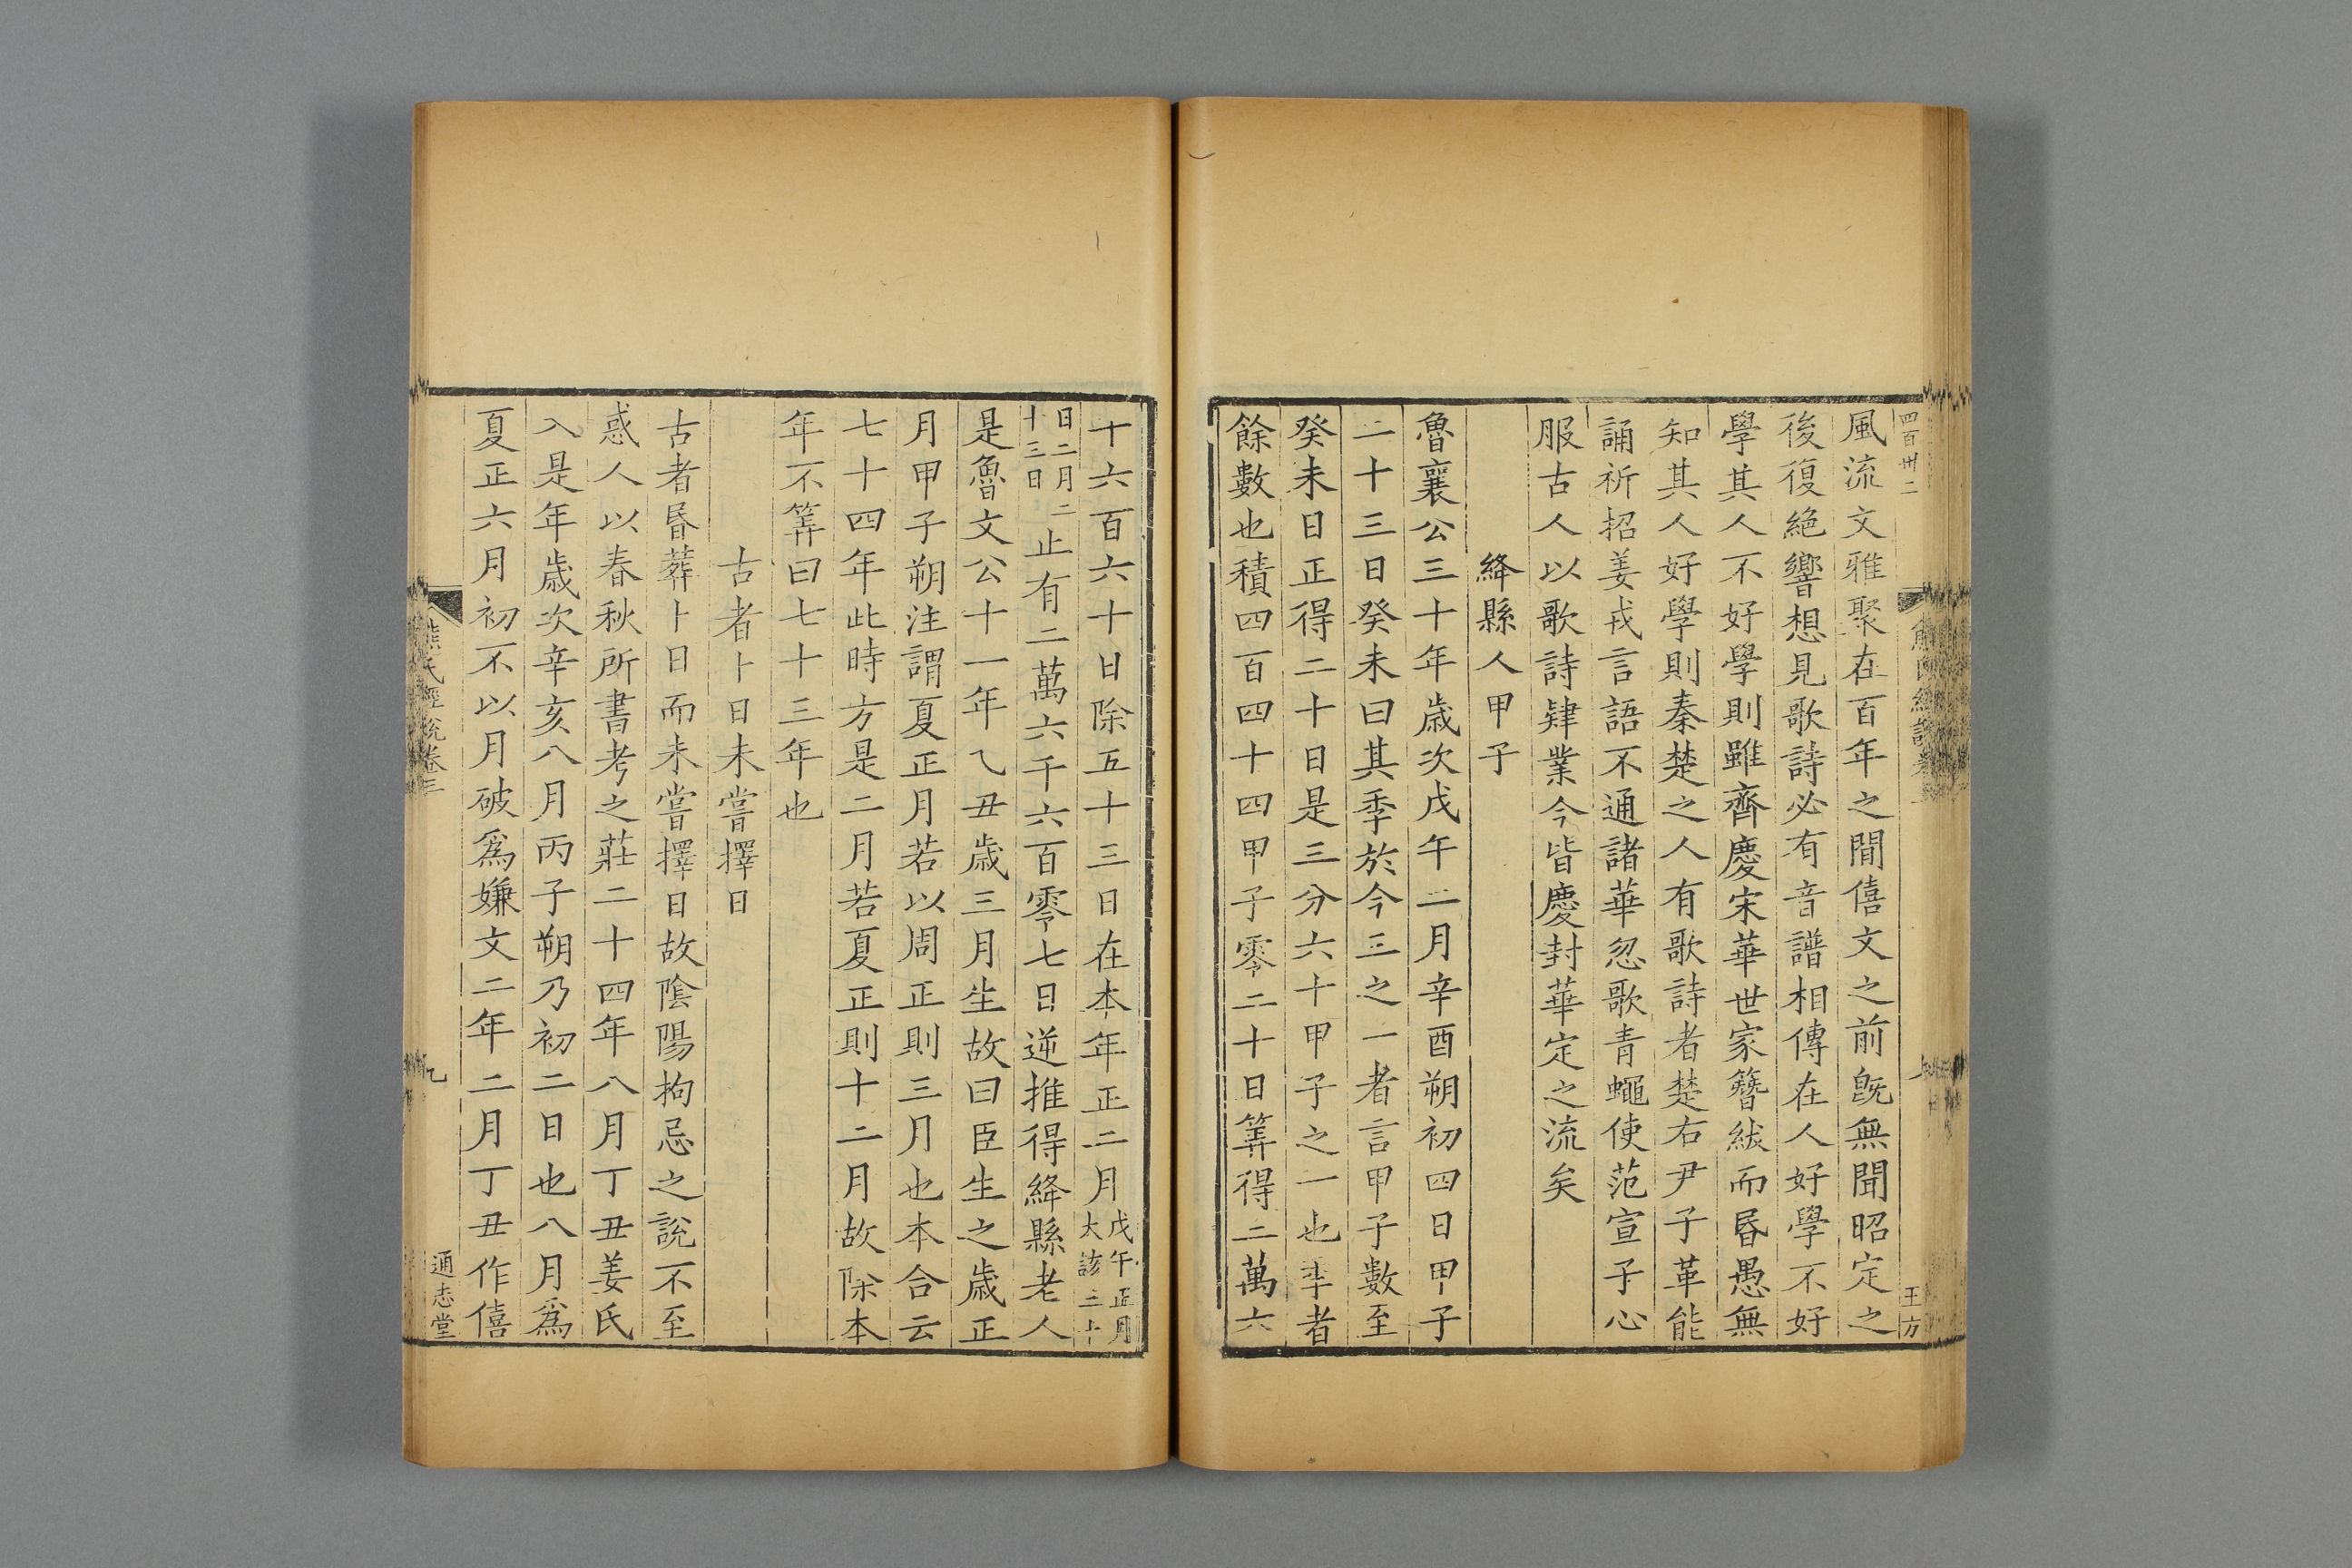 四百卅二
王方
風流文雅聚在百年之間僖文之前旣無聞昭定之
後復絕響想見歌詩必有音譜相傳在人好學不好
學其人不好學則雖齊慶宋華世家簪紱而昬愚無
知其人好學則秦楚之人有歌詩者楚右尹子革能
誦祈招姜戎言語不通諸華忽歌青蠅使范宣子心
服古人以歌詩肄業今皆慶封華定之流矣
絳縣人甲子
魯襄公三十年歲次戊午二月辛酉朔初四日甲子
二十三日癸未曰其季於今三之一者言甲子數至
癸未日正得二十日是三分六十甲子之一也季者
餘數也積四百四十四甲子零二十日筭得二萬六
十六百六十日除五十三日在本年正二月戊午正月大該三十
日二月二十三日止有二萬六千六百零七日逆推得絳縣老人
是魯文公十一年乙丑歲三月生故曰臣生之歲正
月甲子朔注謂夏正月若以周正則三月也本合云
七十四年此時方是二月若夏正則十二月故除本
年不筭曰七十三年也
古者卜日未嘗擇日
古者昬葬卜日而未嘗擇日故陰陽拘忌之說不至
惑人以春秋所書考之莊二十四年八月丁丑姜氏
入是年歲次辛亥八月丙子朔乃初二日也八月爲
夏正六月初不以月破爲嫌文二年二月丁丑作僖
熊氏經說卷三
九
通志堂